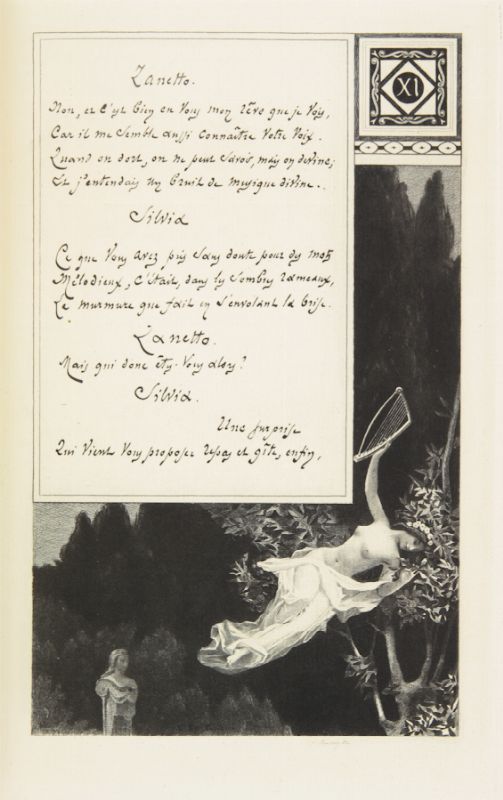 XI
Zanetto.
Non, et c'est bien en vous mon rêve que je vois,
Car il me semble aussi connaître votre voix.
Quand on dort, on ne peut savoir, mais on devine;
Et j'entendais un bruit de musique divine..
Silvia
Ce que vous avez pris sans doute pour des mots
Mélodieux, c'était, dans les sombres rameaux,
Le murmure que fait en s'envolant la brise.
Zanetto.
Mais qui donc êtes-vous alors?
Silvia.
Une surprise
Qui vient vous proposer repas et gîte, enfin,